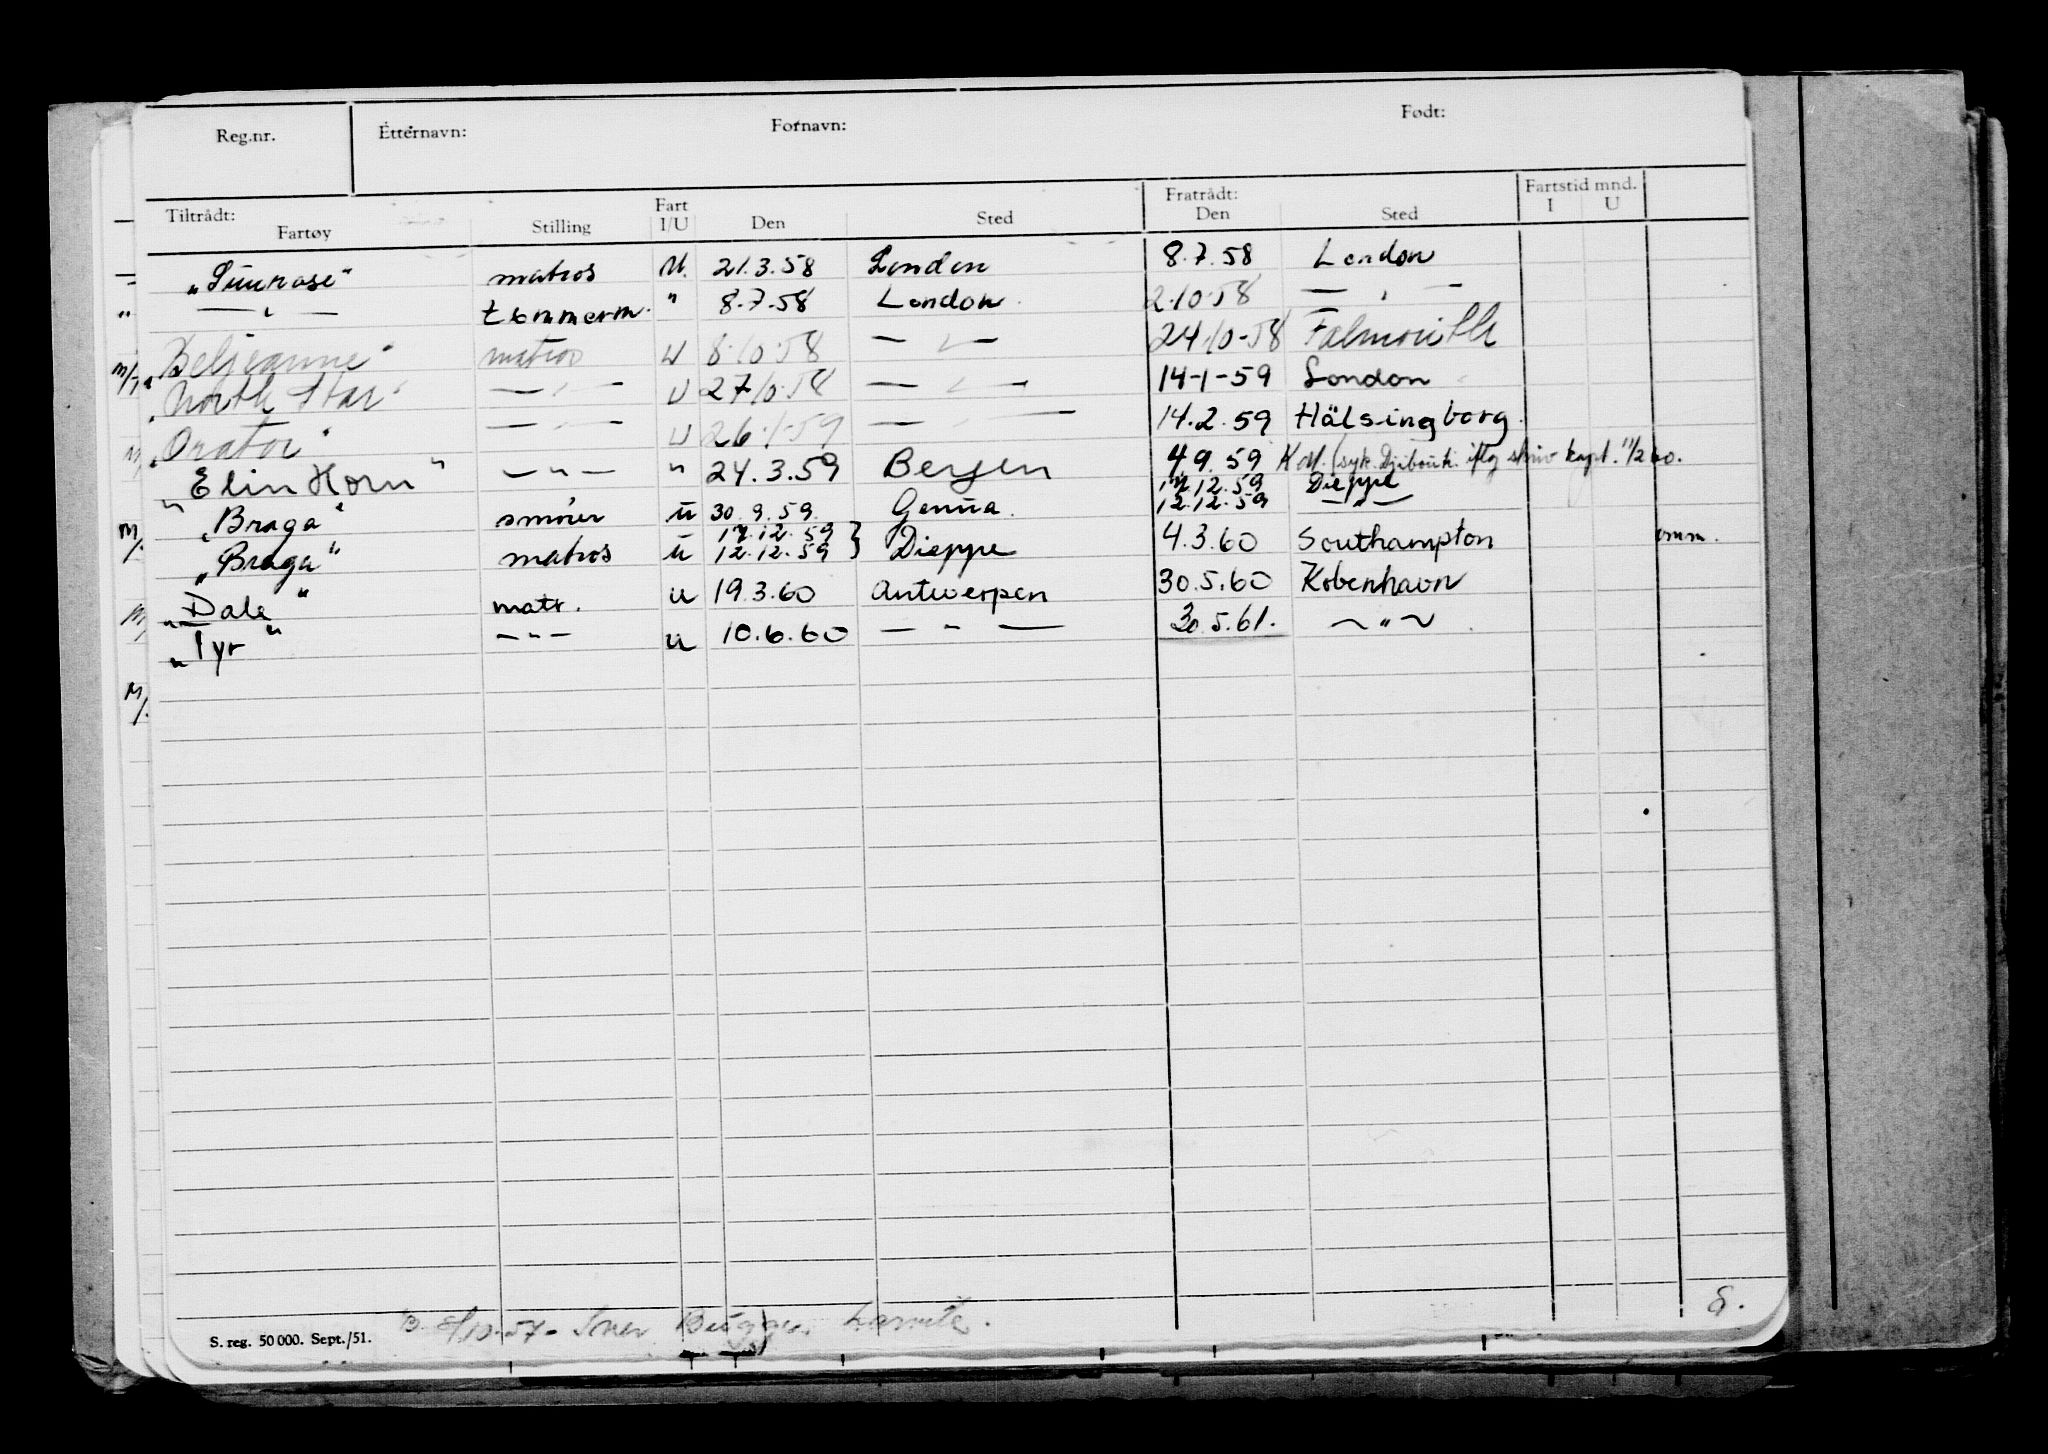 Reg.nr. Etternavn: Fornavn: Født:
Tiltrådt: Fartøy Stilling Fart I/U Den Sted Fratrådt: Den Sted Fartstid mnd. I U
matros U. 21.3.58 London 8.7.58 London
" — " — tømmerm. " 8.7.58 London 2.10.58 — " —
"Beljeanne" matros U 8.10.58 — " — 24.10-58 Falmouth
"North Star" — " — U 27.10.58 — " — 14-1-59 London
"Orator" — " — U 26.1.59 — " — 14.2.59 Hälsingborg.
"Elin Horn" — " — " 24.3.59 Bergen 4.9.59 (syk. Djibouti. iflg skriv kapt. 11/2 60.
17.12.59 Dieppe
"Braga" smører u 30.9.59. Genua. 12.12.59 — " —
17.12.59
"Braga" matros u 12.12.59 } Dieppe 4.3.60 Southampton
"Dale" matr. u 19.3.60 Antwerpen 30.5.60 København
"Tyr" — " — u 10.6.60 — " — 30.5.61. — " —
M/.
S. reg. 50 000. Sept./51.